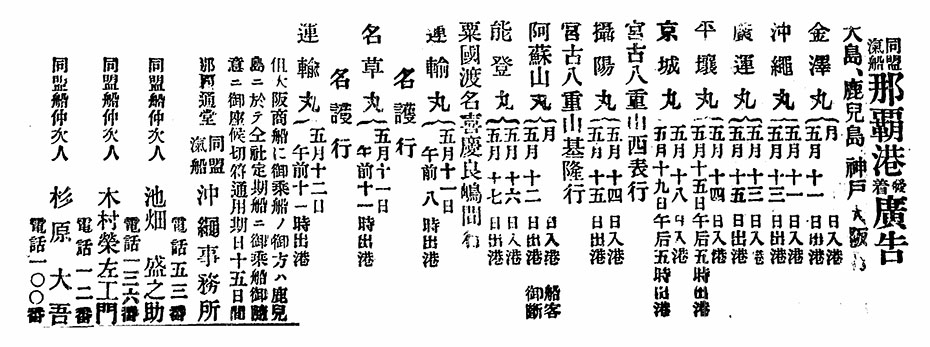 同盟滊船那覇港發着廣告
大島、鹿兒島 神戸 大阪行
金澤丸 月 日入港
五月十一日出港
沖繩丸 五月十一日入港
五月十三日出港
廣運丸 五月十三日入港
五月十五日出港
平壤丸 五月十四日入港
五月十五日午后五時出港
京城丸 五月十八日入港
五月十九日午后五時出港
宮古八重山西表行
攝陽丸 五月十四日入港
五月十五日出港
宮古八重山基隆行
阿蘇山丸 月 日入港 船客
五月十二日出港 御斷
能登丸 五月十六日入港
五月十七日出港
粟國渡名喜慶良嶋間行
運輸丸 五月十一日
午前八時出港
名護行
名草丸 五月十一日
午前十一時出港
名護行
運輸丸 五月十二日
午前十一時出港
但大阪商船に御乘船ノ御方ハ鹿兒
島ニ於テ仝社定期船ニ御乘船御隨
意ニ御座候切符通用期日十五日間
那覇通堂 同盟滊船 沖繩事務所
電話五三番
同盟船仲次人 池畑盛之助
電話一三六番
同盟船仲次人 木村榮左工門
電話一二番
同盟船仲次人 杉原大吾
電話一〇〇番